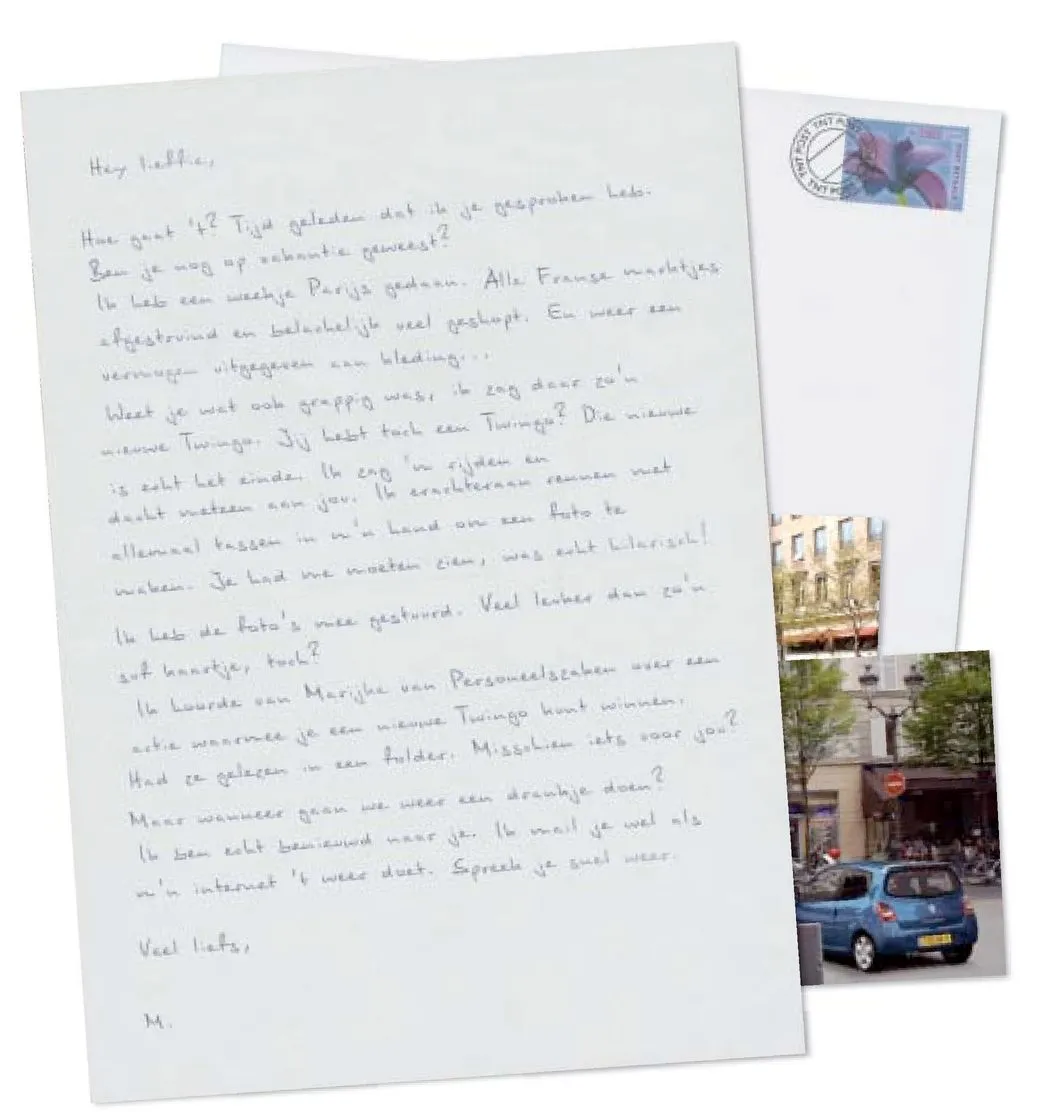 Hey lieffie,
Hoe gaat 't? Tijd geleden dat ik je gesproken heb.
Ben je nog op vakantie geweest?
Ik heb een weekje Parijs gedaan. Alle Franse marktjes
afgestruind en belachelijk veel geshopt. En weer een
vermogen uitgegeven aan kleding...
Weet je wat ook grappig was, ik zag daar zo'n
nieuwe Twingo. Jij hebt toch een Twingo? Die nieuwe
is echt het einde. Ik zag 'm rijden en
dacht meteen aan jou. Ik erachteraan rennen met
allemaal tassen in m'n hand om een foto te
maken. Je had me moeten zien, was echt hilarisch!
Ik heb de foto's mee gestuurd. Veel leuker dan zo'n
suf kaartje, toch?
Ik hoorde van Marijke van Personeelszaken over een
actie waarmee je een nieuwe Twingo kunt winnen.
Had ze gelezen in een folder. Misschien iets voor jou?
Maar wanneer gaan we weer een drankje doen?
Ik ben echt benieuwd naar je. Ik mail je wel als
m'n internet 't weer doet. Spreek je snel weer.
Veel liefs,
M.
TNT POST TNT POST TNT POST